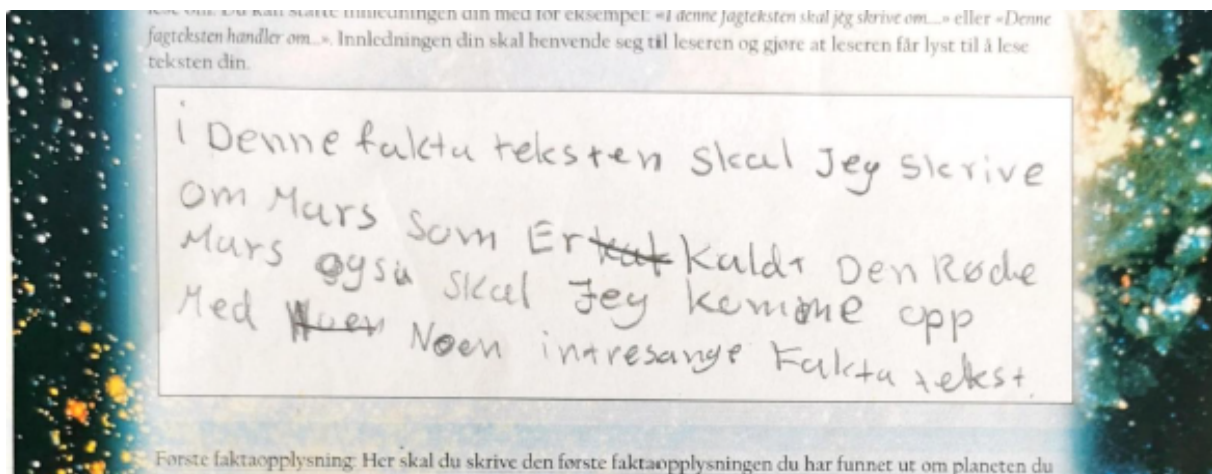 lese om. Du kan starte innledningen din med for eksempel: «I denne fagteksten skal jeg skrive om...» eller «Denne
fagteksten handler om...». Innledningen din skal henvende seg til leseren og gjøre at leseren får lyst til å lese
teksten din.
i Denne fakta teksten skal Jey skrive
om Mars som Er kaldt Den Røde
Mars øgsu skal Jey komme opp
Med Noen intresangt Fakta tekst.
Første faktaopplysning: Her skal du skrive den første faktaopplysningen du har funnet ut om planeten du